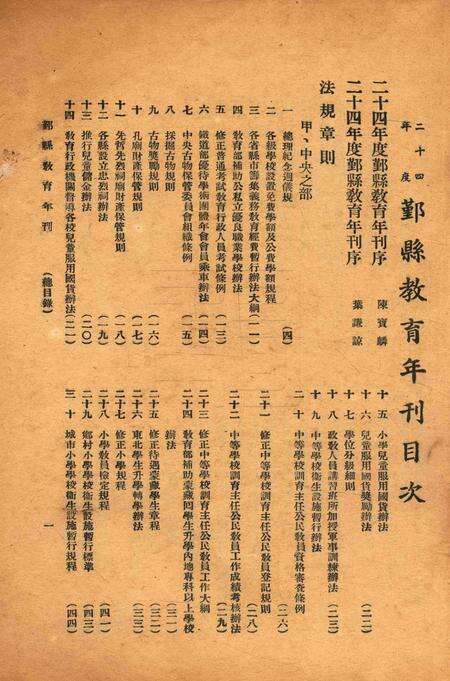 二十四年度鄞縣教育年刊目次
二十四年度鄞縣教育年刊序 陳寶麟
二十四年度鄞縣教育年刊序 葉謙諒
法規章則
甲、中央之部
一 總理紀念週儀規 (四)
二 各級學校設置免費學額及公費學額規程
三 各省縣市籌集義務教育經費暫行辦法大綱 (一一)
四 教育部補助公私立優良職業學校辦法
五 修正普通考試教育行政人員考試條例 (一三)
六 鐵道部優待學術團體年會會員乘車辦法 (一四)
七 中央古物保管委員會組織條例 (一五)
八 採掘古物規則
九 古物獎勵規則 (一六)
十 孔廟財產保管規則 (一七)
十一 先哲先烈祠廟財產保管規則
十二 各縣設立忠烈祠辦法 (一九)
十三 推行兒童儲金辦法 (二〇)
十四 教育行政機關督導各校兒童服用國貨辦法 (二一)
十五 小學兒童服用國貨辦法
十六 兒童服用國貨獎勵辦法 (二二)
十七 學位分級細則
十八 政教人員講習班所加授軍事訓練辦法 (二三)
十九 中等學校衛生設施暫行辦法
二十 中等學校訓育主任公民教員資格審查條例 (二六)
二十一 修正中等學校訓育主任公民教員登記規則 (二八)
二十二 中等學校訓育主任公民教員工作成績考核辦法 (二九)
二十三 修正中等學校訓育主任公民教員工作大綱
二十四 教育部補助蒙藏回學生升學內地專科以上學校
辦法 (三一)
二十五 修正待遇蒙藏學生章程 (三二)
二十六 東北學生升學轉學辦法 (三三)
二十七 修正小學規程
二十八 小學教員檢定規程 (四一)
二十九 鄉村小學學校衛生設施暫行標準 (四三)
三十 城市小學學校衛生設施暫行規程 (四四)
鄞縣教育年刊 (總目錄) 一